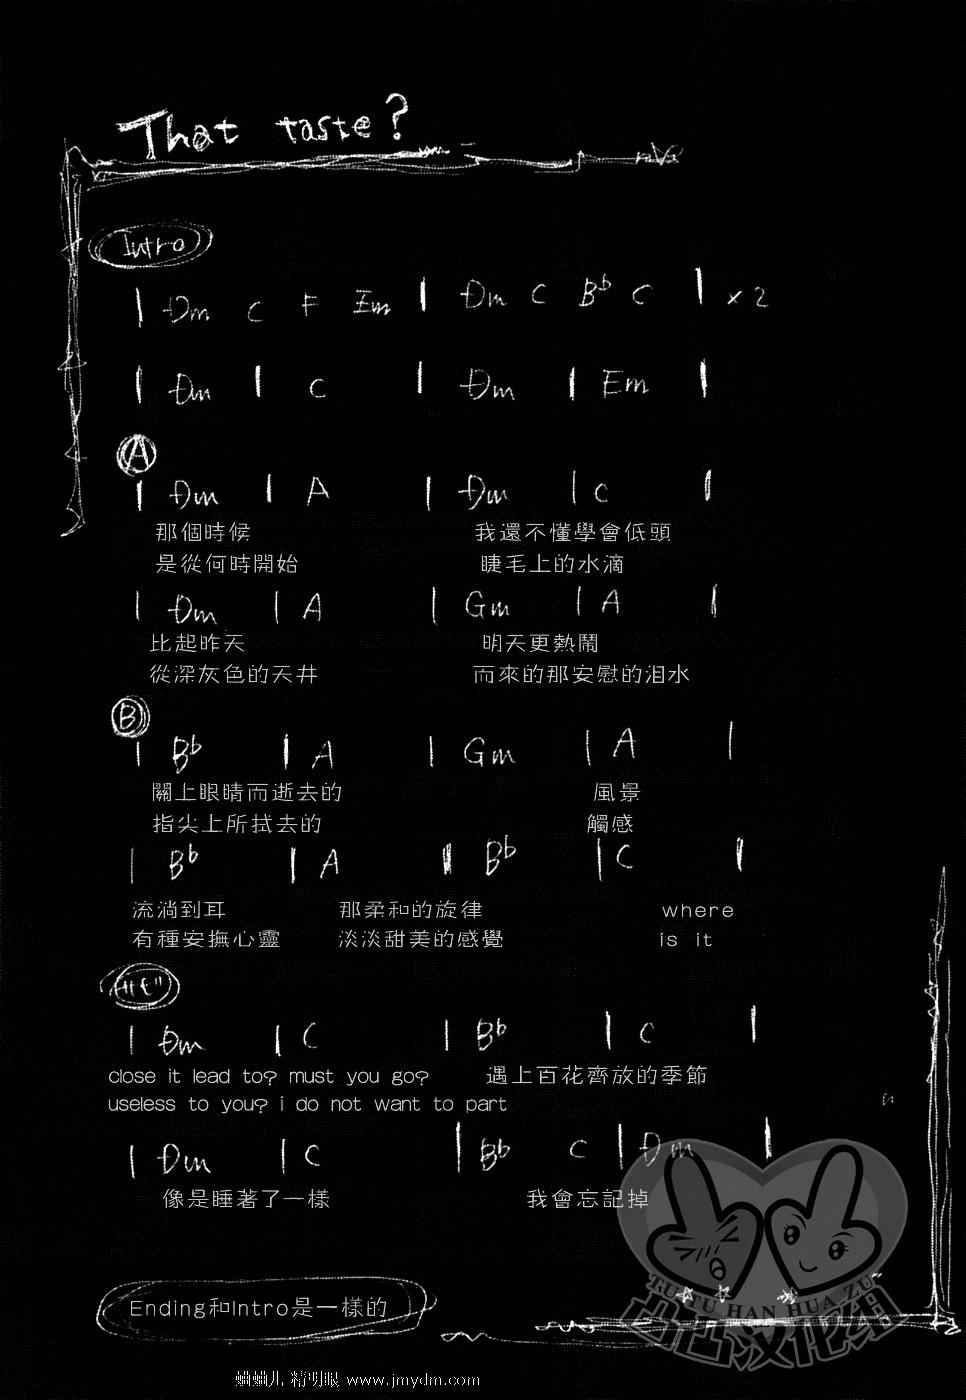 That taste?
Intro
| Dm C F Em | Dm C B♭ C | ×2
| Dm | C | Dm | Em |
A
| Dm | A | Dm | C |
那個時候 我還不懂學會低頭
是從何時開始 睫毛上的水滴
| Dm | A | Gm | A |
比起昨天 明天更熱鬧
從深灰色的天井 而來的那安慰的泪水
B
| B♭ | A | Gm | A |
關上眼睛而逝去的 風景
指尖上所拭去的 觸感
| B♭ | A | B♭ | C |
流淌到耳 那柔和的旋律 where
有種安撫心靈 淡淡甜美的感覺 is it
サビ
| Dm | C | B♭ | C |
close it lead to? must you go? 遇上百花齊放的季節
useless to you? i do not want to part
| Dm | C | B♭ C | Dm |
像是睡著了一樣 我會忘記掉
Ending和Intro是一樣的
TU TU HAN HUA ZU
蝈蝈儿 精明眼 www.jmydm.com